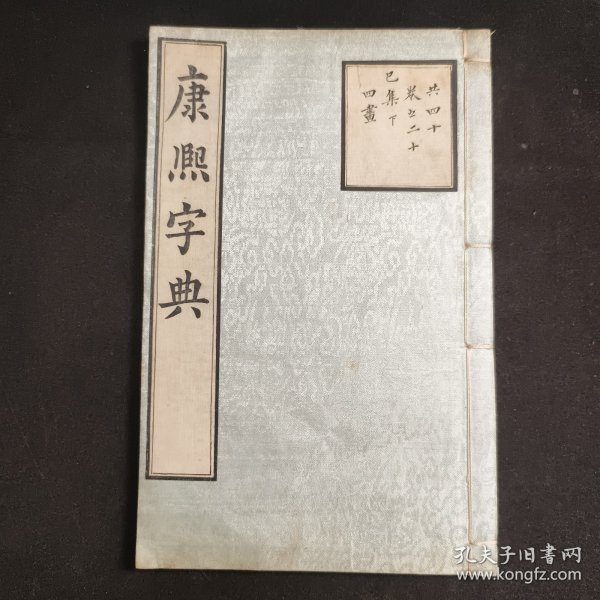 康熙字典
共四十
卷之二十
巳集下
四畫
孔夫子旧书网
www.kongfz.com